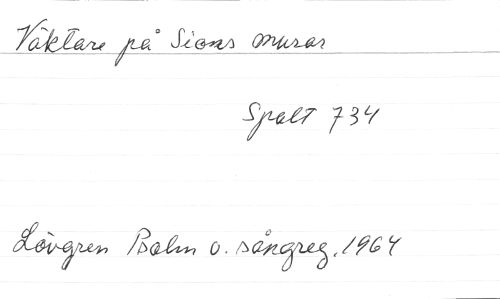 Väktare på Sions murar
Spalt 734
Lövgren Psalm o. sångreg. 1964